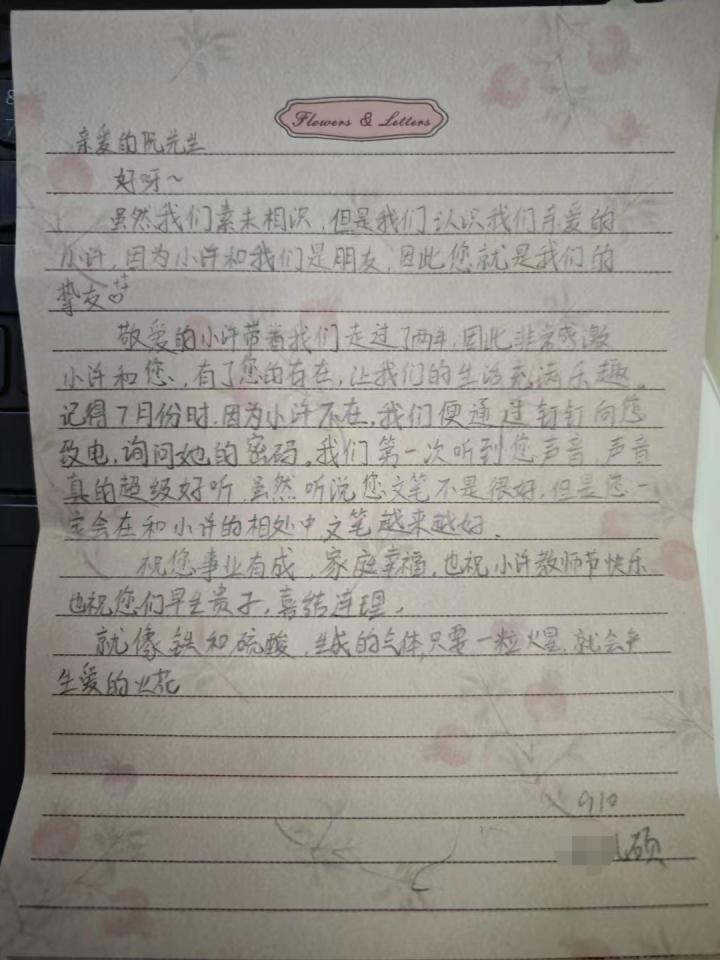 Flowers & Letters
亲爱的阮先生
好呀~
虽然我们素未相识,但是我们认识我们可爱的
小许,因为小许和我们是朋友,因此您就是我们的
挚友♡
敬爱的小许带着我们走过了两年,因此非常感激
小许和您,有了您的存在,让我们的生活充满乐趣。
记得7月份时,因为小许不在,我们便通过钉钉向您
致电,询问她的密码。我们第一次听到您声音,声音
真的超级好听,虽然听说您文笔不是很好,但是您一
定会在和小许的相处中,文笔越来越好。
祝您事业有成,家庭幸福,也祝小许教师节快乐
也祝您们早生贵子,喜结连理。
就像铁和硫酸,生成的气体,只要一粒火星,就会产
生爱的火花
910
硕
8